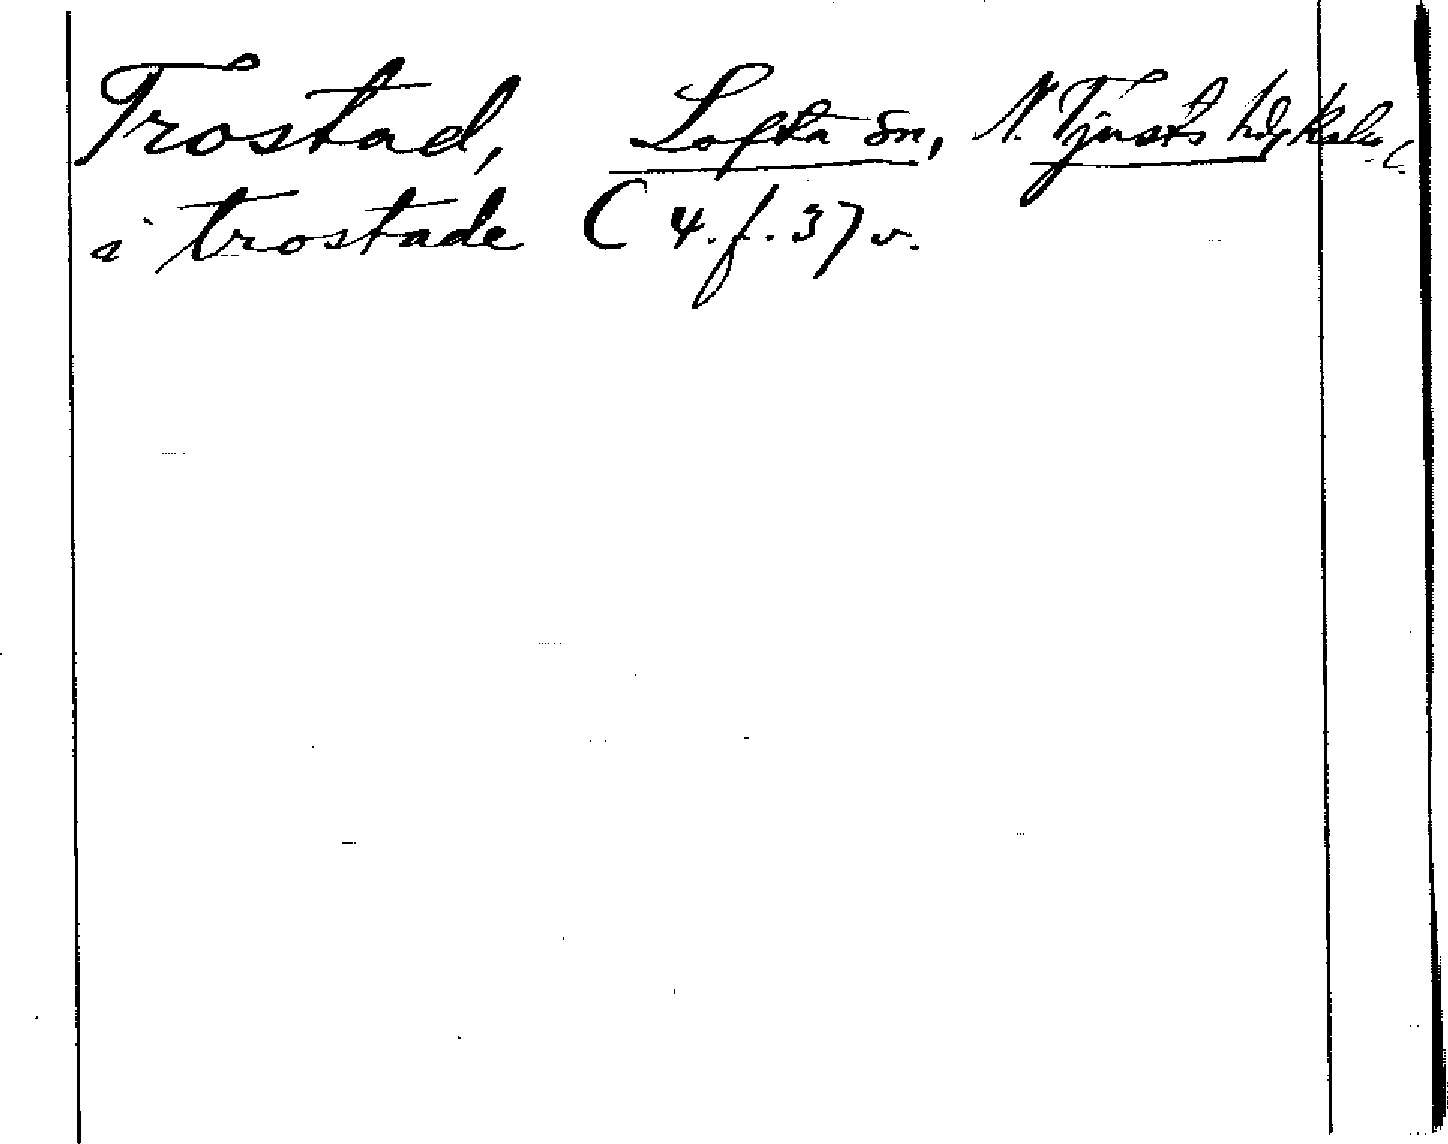 Trostad, Lofta sn, N. Tjusts hd, Kalm
i trostade C 4. f. 37 v.